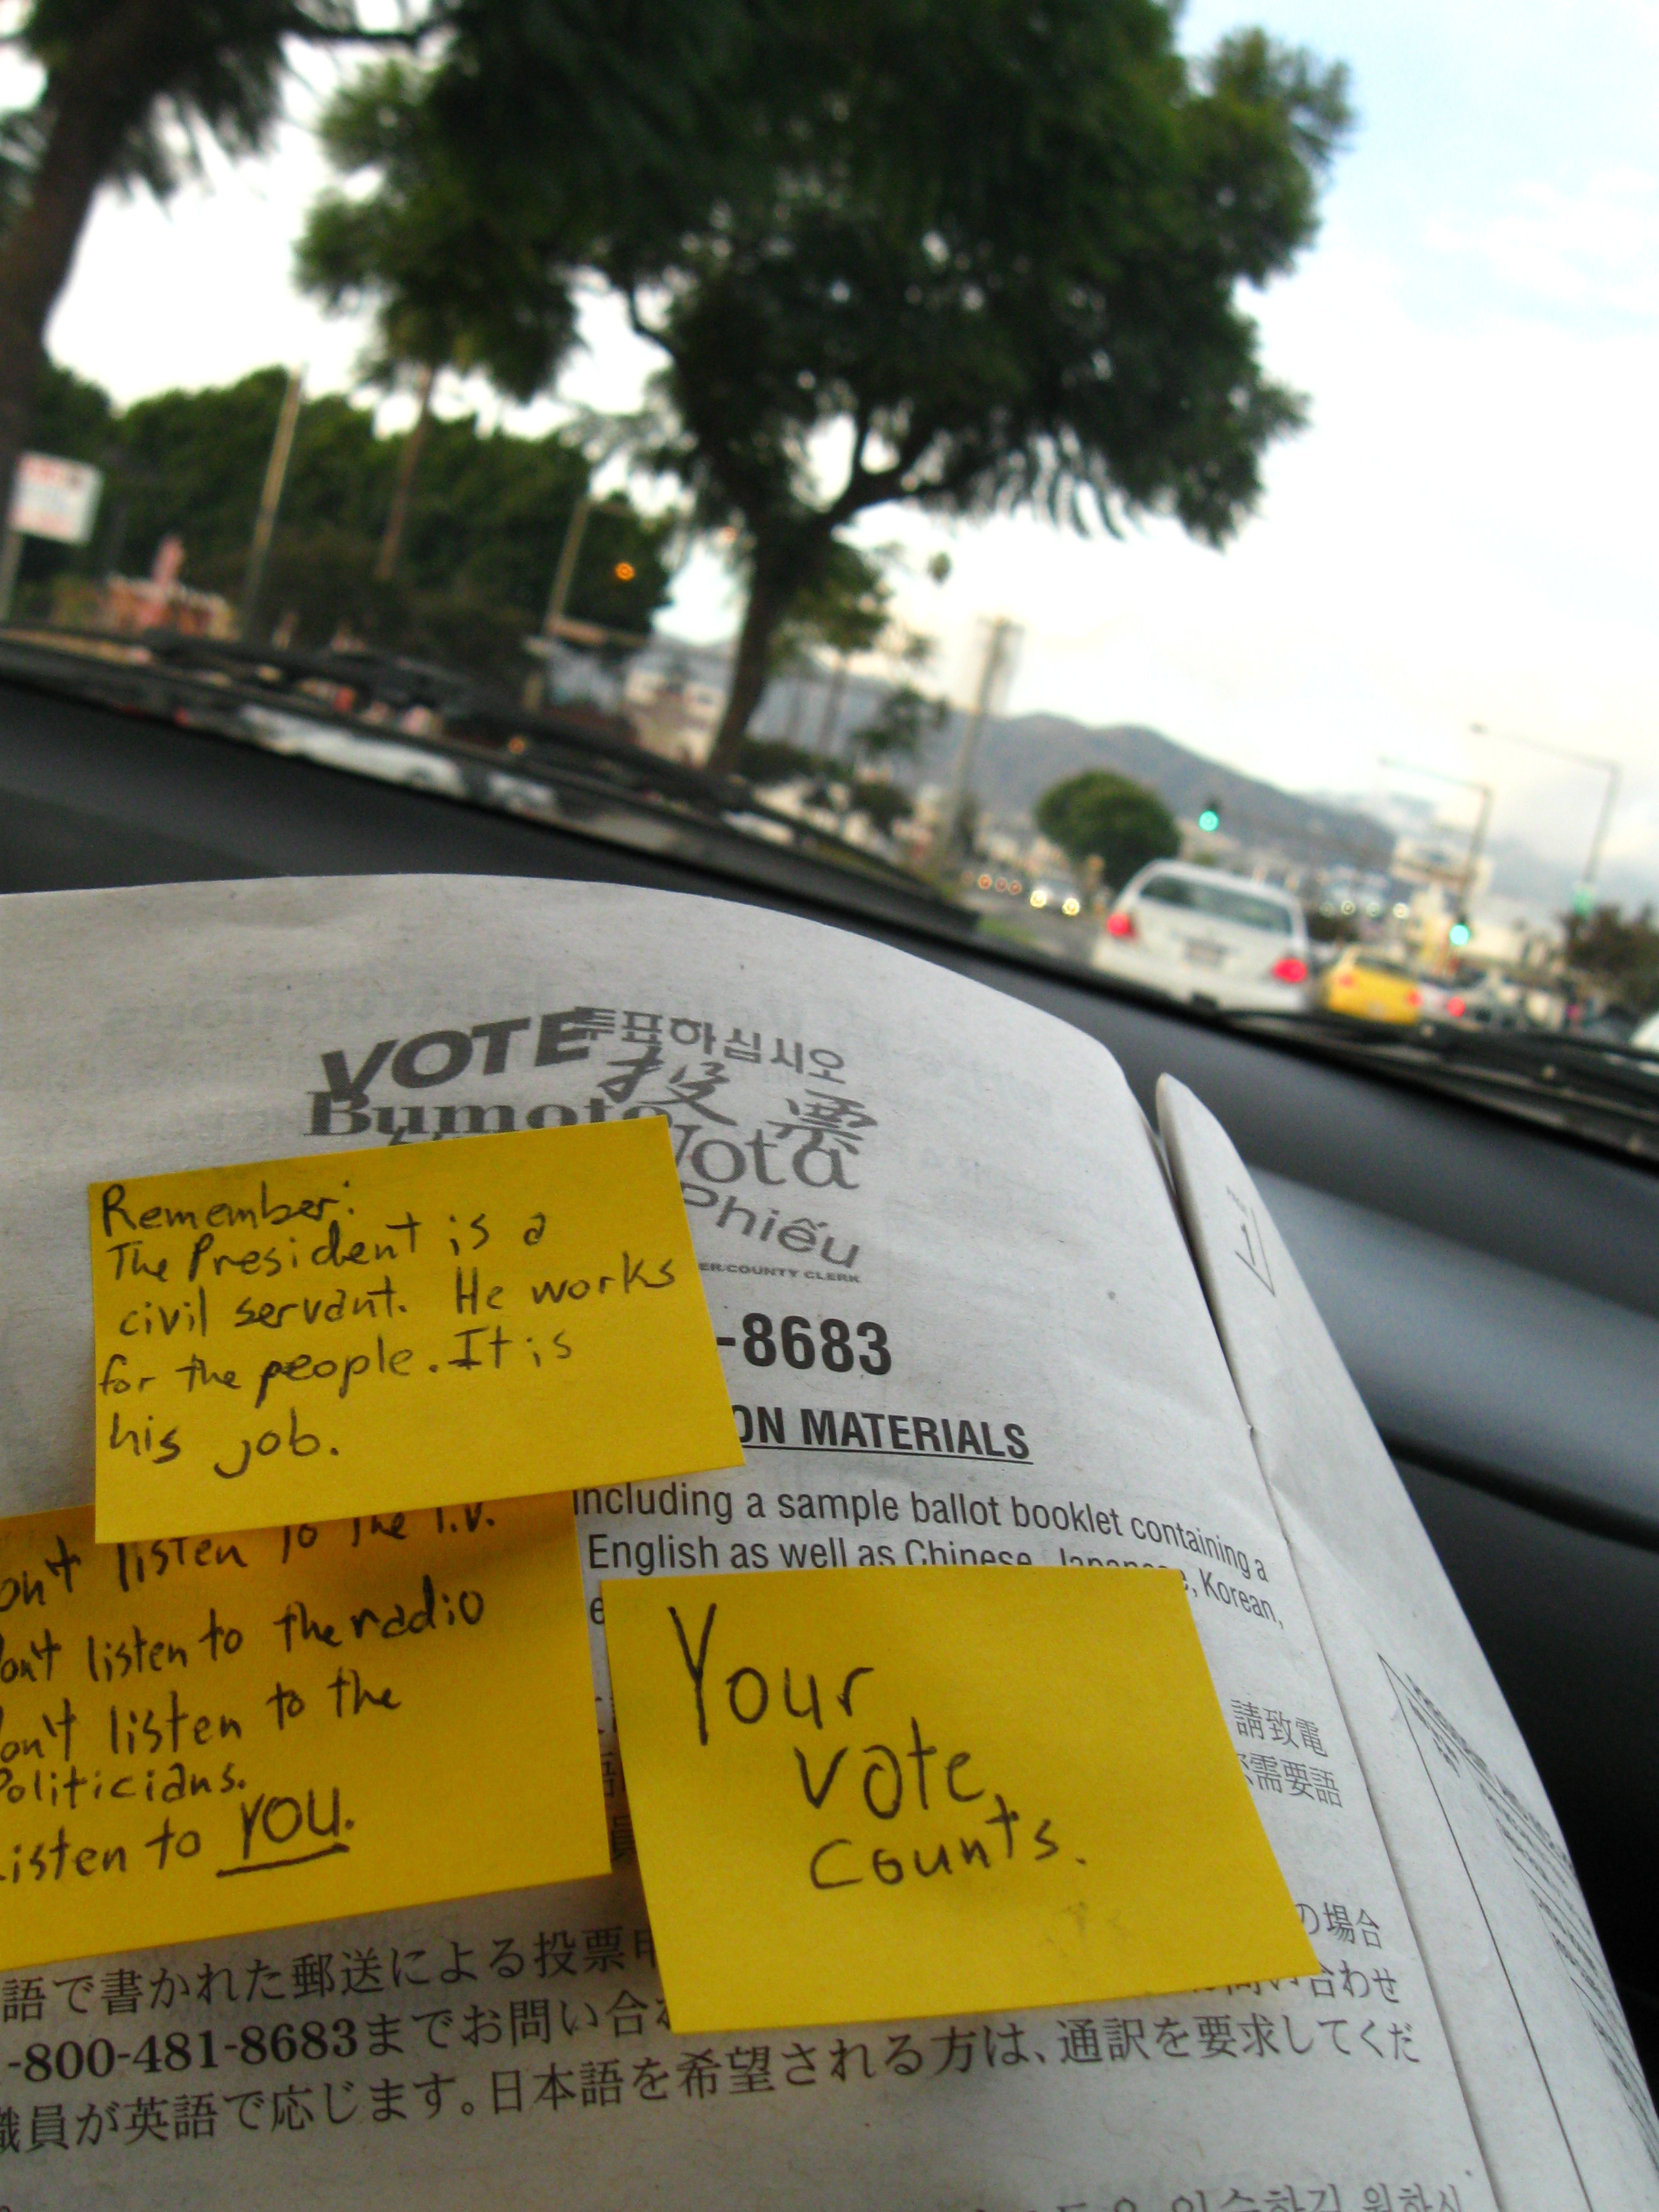 VOTE 투표하십시오
投票
Bumoto
Vota
Phiếu
COUNTY CLERK
-8683
ON MATERIALS
including a sample ballot booklet containing a
English as well as Chinese, Japanese, Korean,
Remember:
The President is a
civil servant. He works
for the people. It is
his job.
on't listen to the T.V.
on't listen to the radio
on't listen to the
Politicians.
Listen to YOU.
Your
vote
counts.
請致電
需要語
の場合
語で書かれた郵送による投票
い合わせ
-800-481-8683までお問い合わ
通訳を要求してくだ
職員が英語で応じます。日本語を希望される方は、